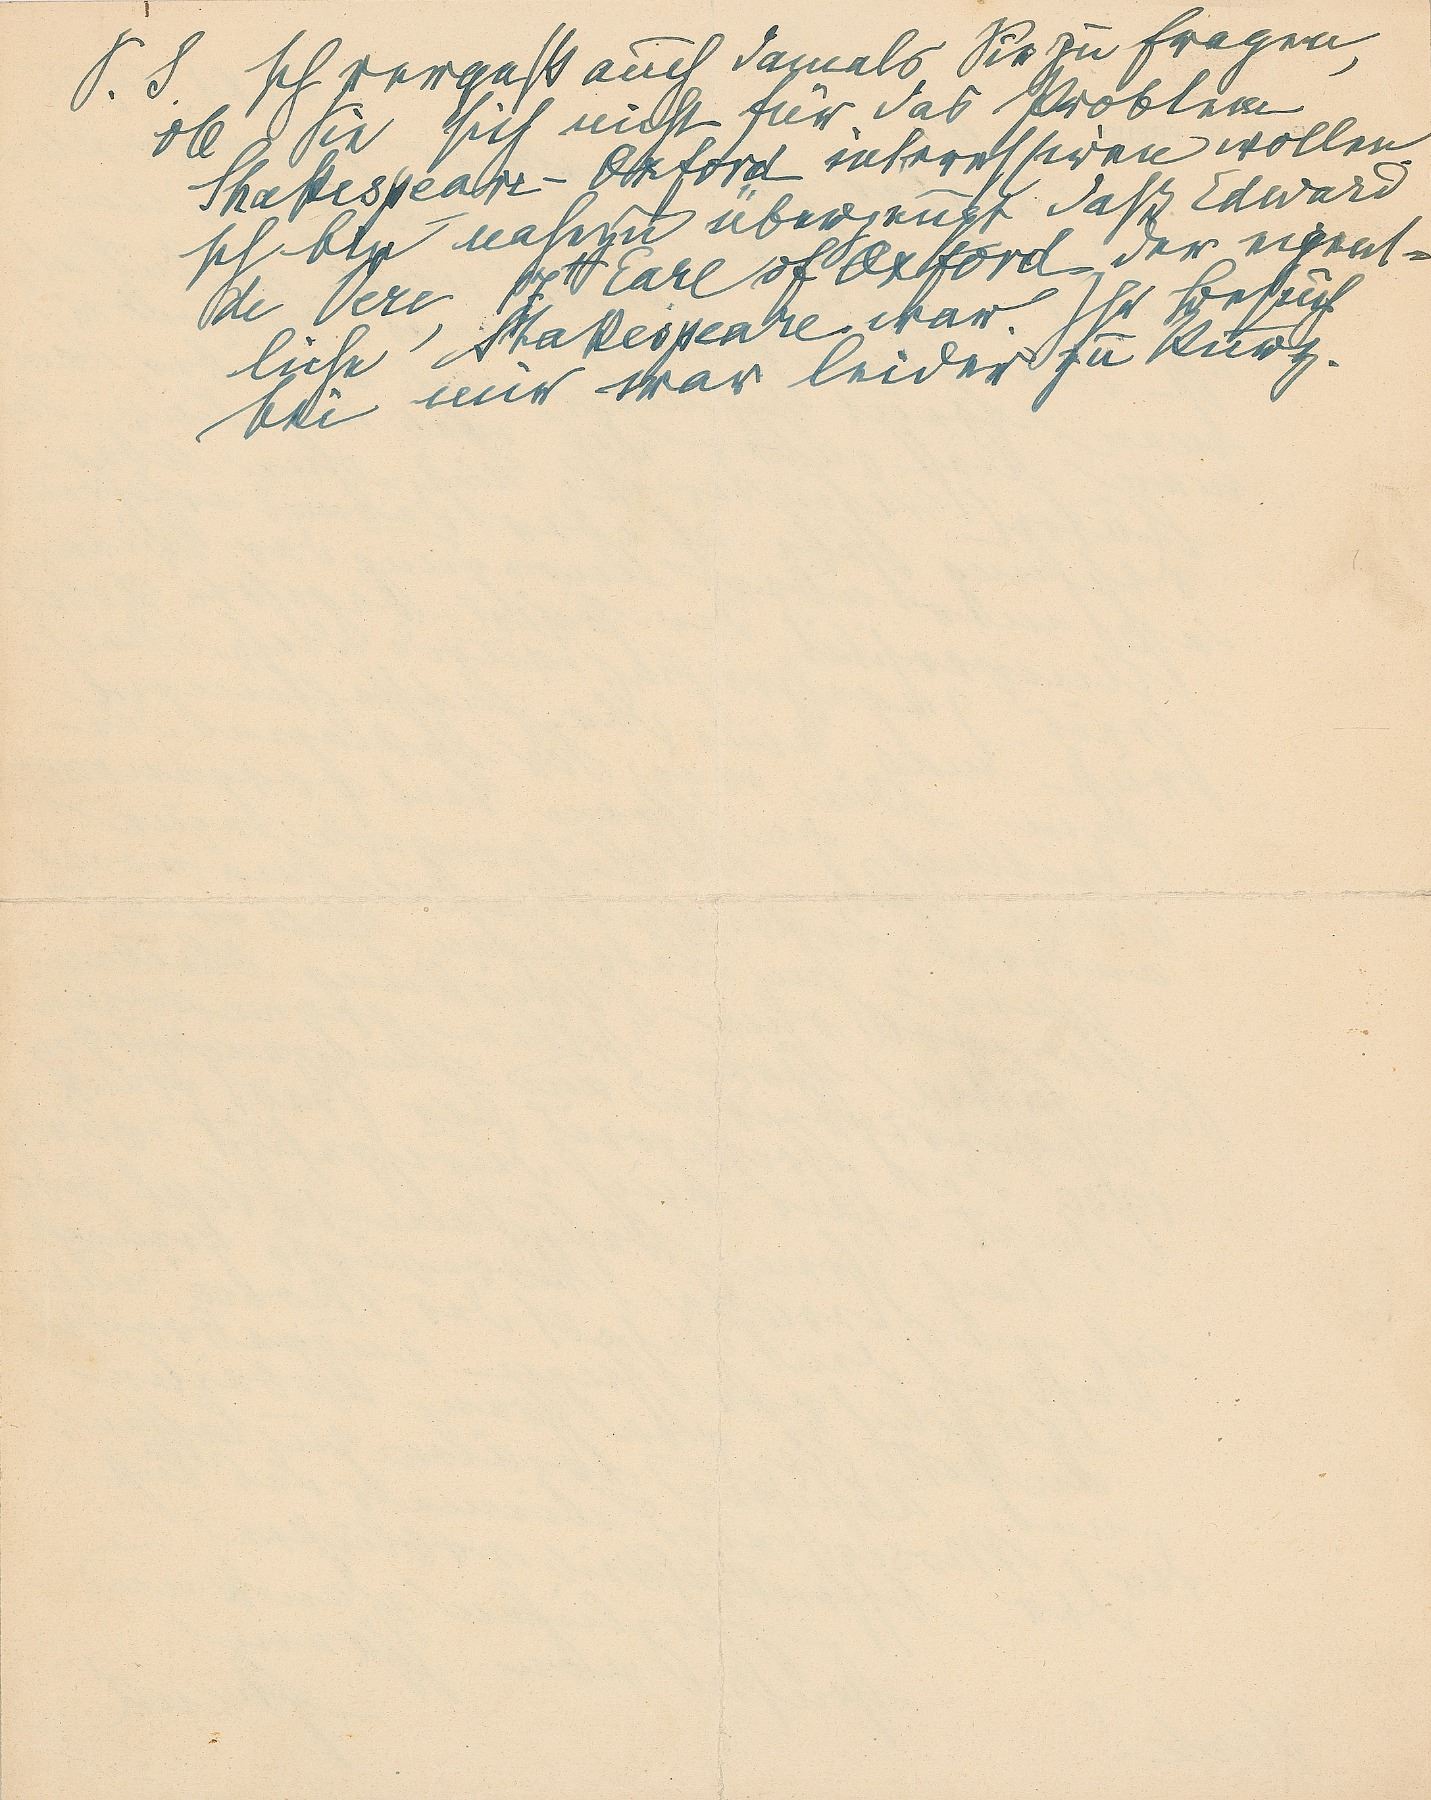 P. S. Ich vergaß auch damals Sie zu fragen,
ob Sie sich nicht für das Problem
Shakespeare-Oxford interessiren wollen.
Ich bin nahezu überzeugt daß Edward
de Vere, 17th Earl of Oxford der eigent=
liche Shakespeare war. Ihr Besuch
bei mir war leider zu kurz.